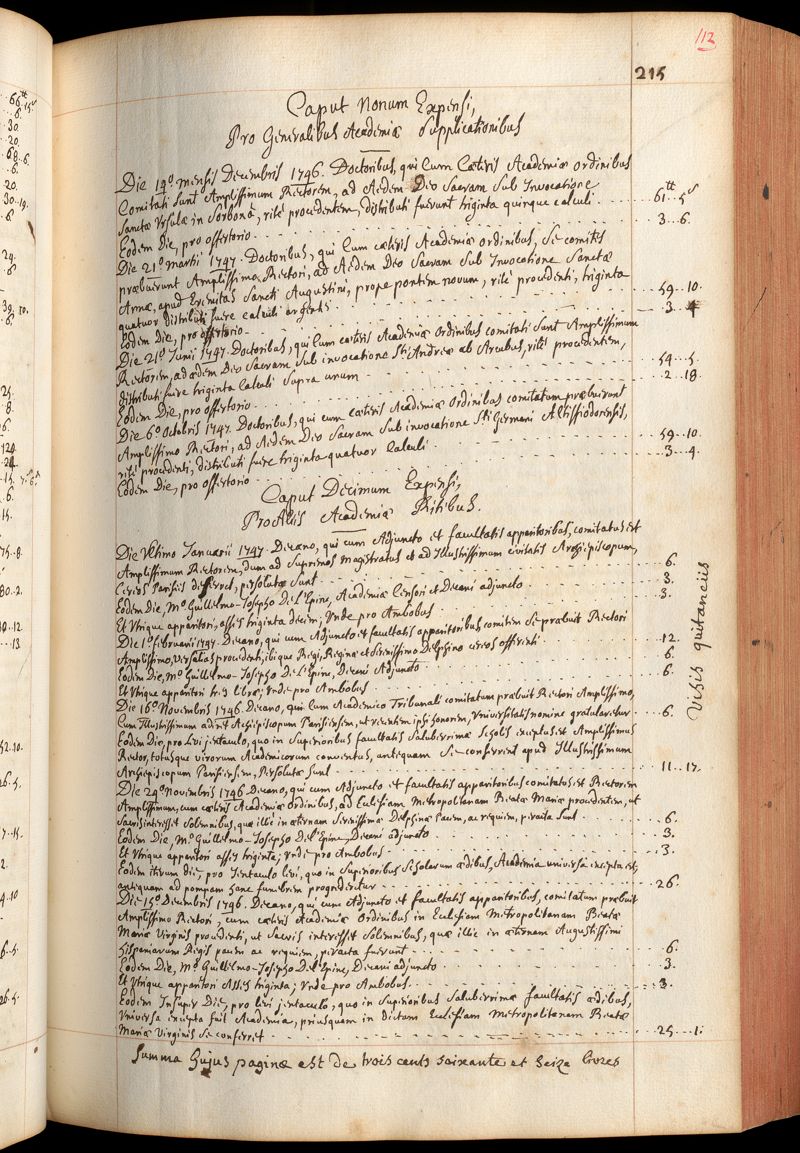 113
215
Caput Nonum Expensi,
Pro Generalibus Academiæ Supplicationibus
Die 19º mensis Decembris 1746. Doctoribus, qui Cum Cæteris Academiæ ordinibus
Comitati Sunt Amplissimum Rectorem, ad Aedem Deo Sacram Sub Invocatione
Sanctæ Ursulæ in Sorbonâ, ritè procedentem, distributi fuerunt triginta quinque calculi . . . 61tt. 5s
Eodem Die, pro offertorio . . . 3. 6.
Die 21º martii 1747. Doctoribus, qui Cum cæteris Academiæ ordinibus, Se comites
præbuerunt Amplissimo Rectori, ad Aedem Deo Sacram Sub Invocatione Sanctæ
Annæ, apud Eremitas Sancti Augustini, prope pontem novum, ritè procedenti, triginta
quatuor distributi fuere calculi argentei . . . 59. 10.
Eodem Die, pro offertorio . . . 3. 4
Die 21º Junii 1747. Doctoribus, qui Cum cæteris Academiæ ordinibus comitati Sunt Amplissimum
Rectorem, ad ædem Deo Sacram Sub invocatione Sti Andreæ ab Arcubus, ritè procedentem,
distributi fuere triginta Calculi Supra unum . . . 54. 5.
Eodem Die, pro offertorio . . . 2. 18.
Die 6º Octobris 1747. Doctoribus, qui cum cæteris Academiæ Ordinibus comitatum præbuerunt
Amplissimo Rectori, ad Aedem Deo Sacram Sub invocatione Sti Germani Altissiodorensis,
ritè procedenti, distributi fuere triginta quatuor Calculi . . . 59. 10.
Eodem Die, pro offertorio . . . 3. 4.
Caput Decimum Expensi,
Pro Aliis Academiæ Ritibus.
Die Ultimo Januarii 1747. Decano, qui cum Adjuncto et facultatis apparitoribus, comitatus est
Amplissimum Rectorem, dum ad Supremos Magistratus et ad Illustrissimum civitatis Archiepiscopum,
Cereos Parisiis deferret, persolutæ Sunt . . . 6.
Eodem Die, Mo. Guillelmo-Josepho De L'Epine, Academiæ Censori et Decani adjuncto . . . 3.
Et Utrique apparitori, asses triginta decim; Unde pro Ambobus . . . 3.
Die 1º februarii 1747. Decano, qui cum Adjuncto et facultatis apparitoribus comitem Se præbuit Rectori
Amplissimo, Versalias procedenti, ibique Regi, Reginæ et Serenissimo Delphino cereos offerenti . . . 12.
Eodem Die, Mo. Guillelmo-Josepho De L'Epine, Decani Adjuncto . . . 6.
Et Utrique apparitori tres libræ; Unde pro Ambobus . . . 6.
Die 16º Novembris 1746. Decano, qui Cum Academico Tribunali comitatum præbuit Rectori Amplissimo,
Cum Illustrissimum adiret Archiepiscopum Parisiensem, ut recentem ipsi honorem, Universitatis nomine gratularetur . . . 6.
Eodem Die, pro Levi jentaculo, quo in Superioribus facultatis Saluberrimæ Scholis exceptus et Amplissimus
Rector, totusque virorum Academicorum conventus, antequam Se conferrent apud Illustrissimum
Archiepiscopum Parisiensem, Persolutæ Sunt . . . 11. 17.
Die 24º Novembris 1746. Decano, qui cum Adjuncto et facultatis apparitoribus comitatus est Rectorem
Amplissimum, cum cæteris Academiæ ordinibus, ad Ecclesiam Metropolitanam Beatæ Mariæ procedentem, ut
Sacris interesset Solemnibus, quæ illic in æternam Serenissimæ Delphinæ Pacem, ac requiem, peracta Sunt . . . 6.
Eodem Die, Mo. Guillelmo-Josepho De L'Epine, Decani adjuncto . . . 3.
Et Utrique apparitori asses triginta; Unde pro Ambobus . . . 3.
Eodem iterum Die, pro Jentaculo levi, quo in Superioribus Scholarum ædibus, Academia universa excepta est,
antequam ad pompam hanc funebrem progrederetur . . . 26.
Die 15º Decembris 1746. Decano, qui cum Adjuncto et facultatis apparitoribus, comitatum præbuit
Amplissimo Rectori, cum cæteris Academiæ Ordinibus in Ecclesiam Metropolitanam Beatæ
Mariæ Virginis procedenti, ut Sacris interesset Solemnibus, quæ illic in æternam Augustissimi
Hispaniarum Regis pacem ac requiem, peracta fuerunt . . . 6.
Eodem Die, Mo. Guillelmo-Josepho De L'Epine, Decani adjuncto . . . 3.
Et Utrique apparitori Asses triginta; Unde pro Ambobus . . . 3.
Eodem Insuper Die, pro levi jentaculo, quo in Superioribus Saluberrimæ facultatis ædibus,
Universa excepta fuit Academia, priusquam in dictam Ecclesiam Metropolitanam Beatæ
Mariæ Virginis Se conferret . . . 25. 1.
Summa hujus paginæ est de trois cents soixante et seize livres
Visis quitanciis